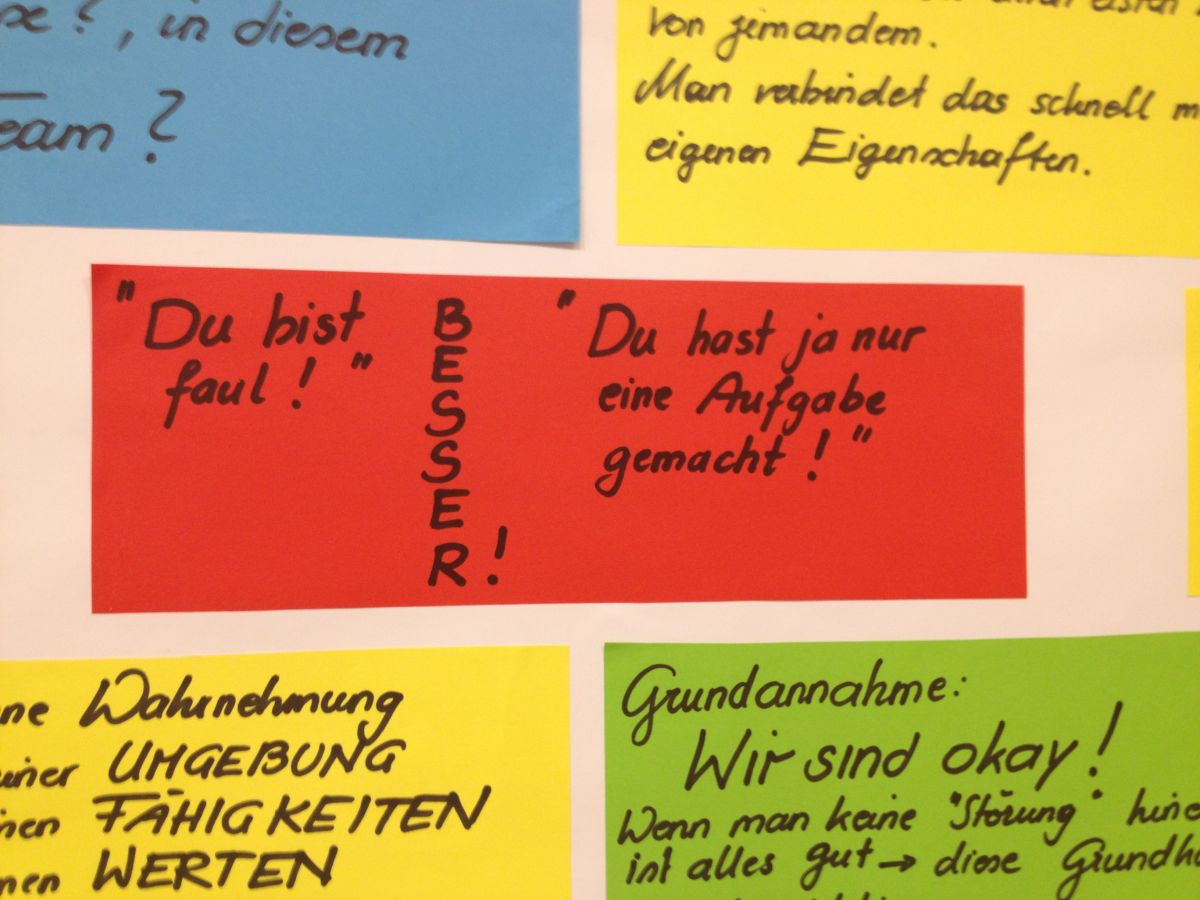 ?, in diesem
Team ?
von jemandem.
Man verbindet das schnell
eigenen Eigenschaften.
"Du bist
faul!"
BESSER!
"Du hast ja nur
eine Aufgabe
gemacht!"
Wahrnehmung
UMGEBUNG
FÄHIGKEITEN
WERTEN
Grundannahme:
Wir sind okay!
Wenn man keine "Störung"
ist alles gut → diese